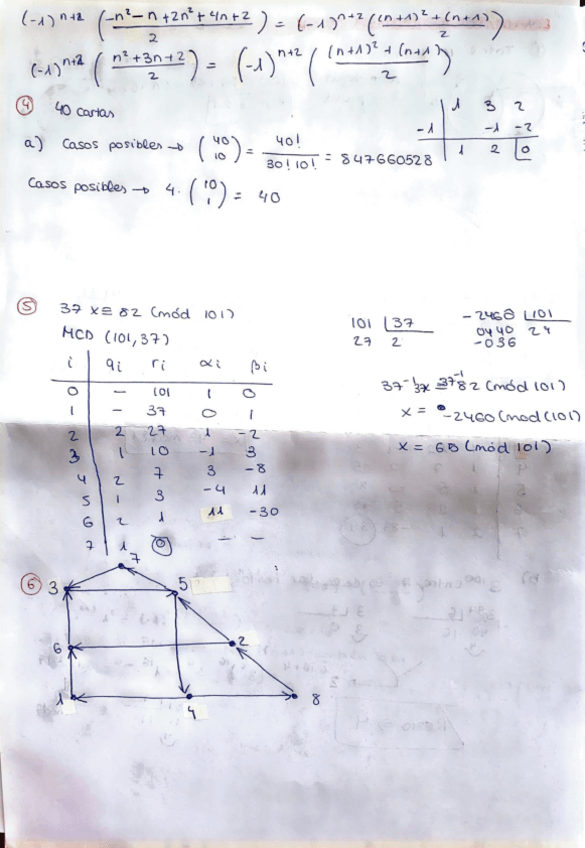 (-1)^{n+2} ( (-n² - n + 2n² + 4n + 2) / 2 ) = (-1)^{n+2} ( ((n+1)² + (n+1)) / 2 )
(-1)^{n+2} ( (n² + 3n + 2) / 2 ) = (-1)^{n+2} ( ((n+1)² + (n+1)) / 2 )
④ 40 cartas
a) Casos posibles → (40 10) = 40! / 30! 10! = 847660528
Casos posibles → 4 · (10 1) = 40
1 3 2
-1 -1 -2
1 2 0
⑤ 37 x ≡ 82 (mód 101)
MCD (101, 37)
i qi ri αi βi
0 - 101 1 0
1 - 37 0 1
2 2 27 1 -2
3 1 10 -1 3
4 2 7 3 -8
5 1 3 -4 11
6 2 1 11 -30
7 1 0 - -
101 37
27 2
-2460 101
0440 24
-036
37⁻¹ 37x ≡ 37⁻¹ 82 (mód 101)
x = -2460 (mod 101)
x = 60 (mód 101)
⑥
7
3
5
6
2
1
4
8